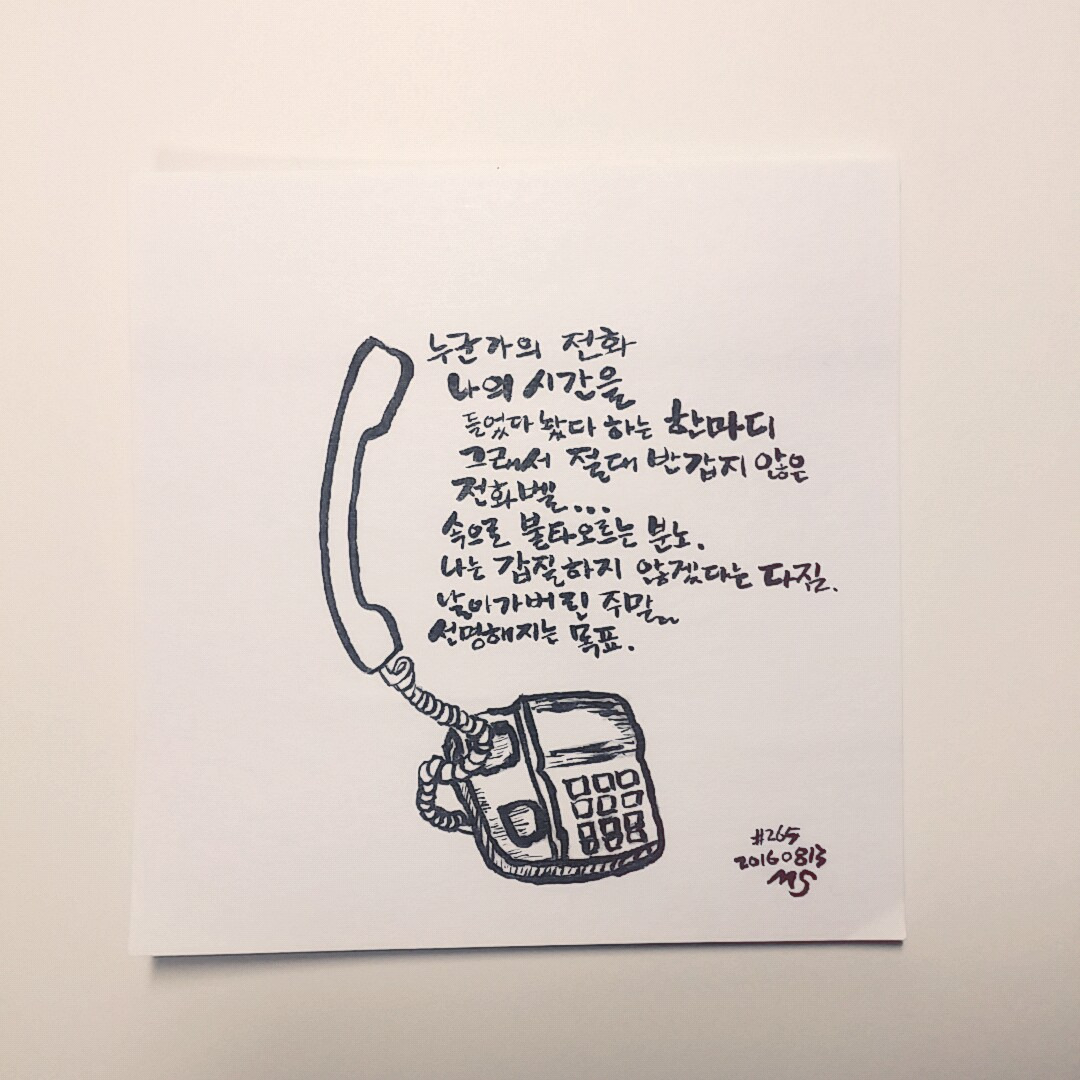 누군가의 전화
나의 시간을
들었다 놨다 하는 한마디
그래서 절대 반갑지 않은
전화벨...
속으로 불타오르는 분노.
나는 갑질하지 않겠다는 다짐.
날아가버린 주말..
선명해지는 목표.
#265
20160813
MS